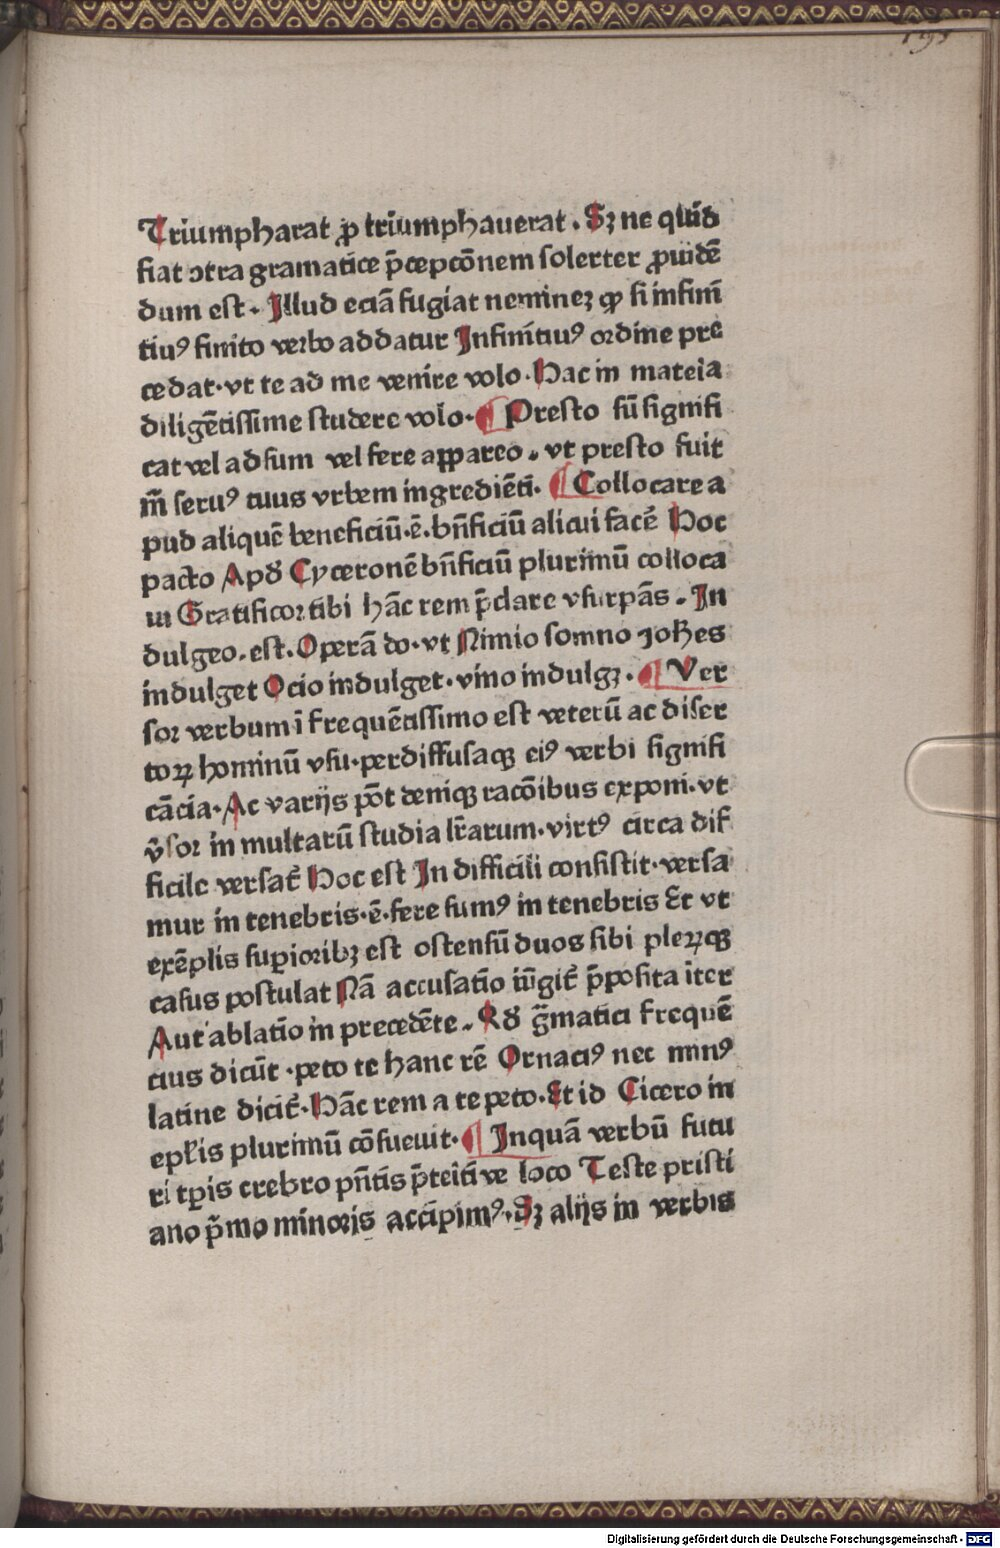 195
Triumpharat ꝓ triumphauerat. Sꝫ ne quid
fiat ↄtra gramatice p̄cepcōnem solerter ꝓuidē
dum est. Illud eciā fugiat nemineꝫ ꝙ si infinit̄
tiuꝰ finito verbo addatur Infinit̄iuꝰ ordine pre
cedat. vt te ad me venire volo. Hac in mate͛ia
diligētissime studere volo. ¶ Presto sū signifi
cat vel adsum vel fere appareo. vt presto fuit
m̄ seruꝰ tuus vrbem ingrediēti. ¶ Collocare a
pud aliquē beneficiū.ē.bn̄ficiū alicui facē Hoc
pacto Apđ Cyceronē bn̄ficiū plurimū colloca
ui Gratificor tibi hāc rem p̄clare vsurpās. In
dulgeo.est. Operā do. vt Nimio somno Joħes
indulget Ocio indulget. vino indulgꝫ. ¶ Ver
sor verbum ī frequētissimo est veterū ac diser
toꝝ hominū vsu. perdiffusaqꝫ eiꝰ verbi signifi
cācia. Ac varijs pōt deniqꝫ racōibus exponi. vt
v̓sor in multarū studia lr̄arum. virtꝰ circa dif
ficile versat᷑ Hoc est In difficili consistit. versa
mur in tenebris.ē.fere sumꝰ in tenebris Et vt
exēplis suꝑioribꝫ est ostensū duos sibi pleꝝqꝫ
casus postulat Nā accusatīo iūgit᷑ p̄posita iter
Aut ablatīo in precedēte. Rđ g̃matici frequē
cius dicūt. peto te hanc rē Ornaciꝰ nec minꝰ
latine dicit᷑. Hāc rem a te peto. Et id Cicero in
epl̄is plurimū cōsueuit. ¶ Inquā verbū futu
ri tꝑis crebro pn̄tis p̄teiti ve loco Teste pristi
ano p̄mo minoris acciꝑimꝰ. Sꝫ alijs in verbis
Digitalisierung gefördert durch die Deutsche Forschungsgemeinschaft - DFG